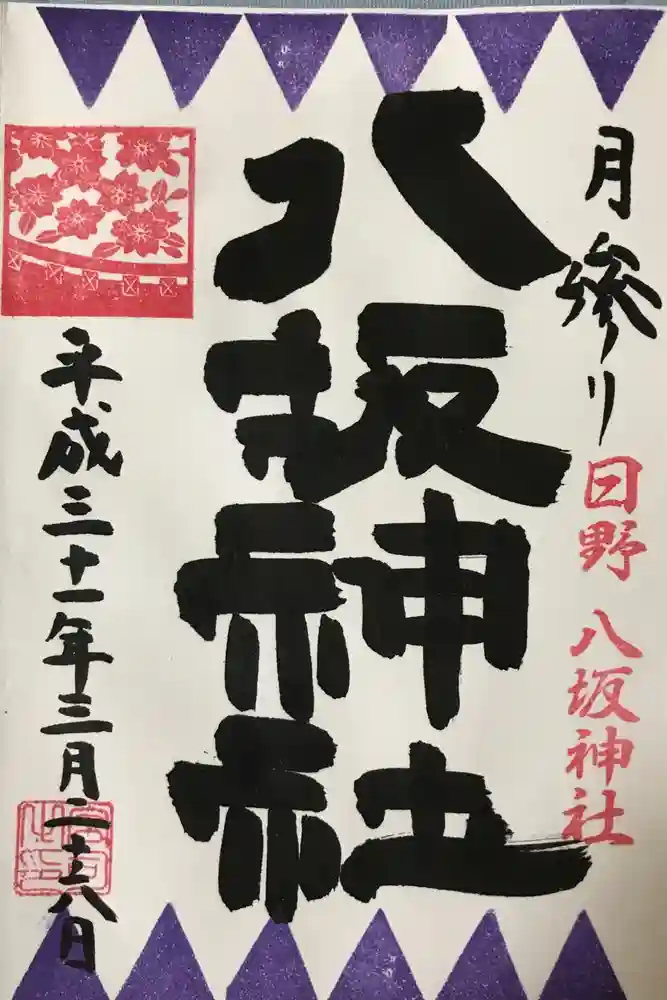 月参り
日野 八坂神社
八坂神社
平成三十一年三月二十八日